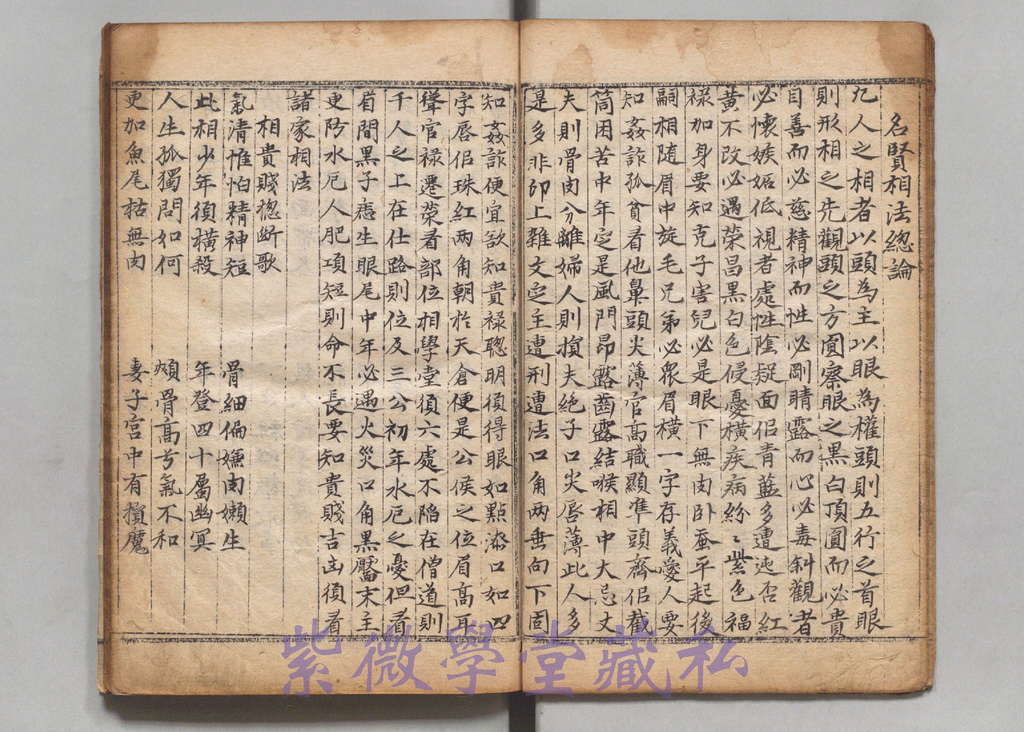 名賢相法總論
凡人之相者以頭為主以眼為權頭則五行之首眼
則形相之先觀頭之方圓察眼之黑白頂圓而必貴
目善而必慈精神而性必剛睛露而心必毒斜觀者
必懷嫉妬低視者處性陰疑面佀青藍多遭迍否紅
黃不改必遇榮昌黑白色侵憂橫疾病紛〻紫色福
祿加身要知克子害兒必是眼下無肉卧蚕平起後
嗣相随眉中旋毛兄弟必衆眉橫一字存義愛人要
知姦詐孤貧看他鼻頭尖薄官高職顯準頭齊佀截
筒困苦中年定是風門昂露齒露結喉相中大忌丈
夫則骨肉分離婦人則損夫絶子口尖唇薄此人多
是多非卯上雜文定主遭刑遭法口角兩垂向下固
知姦詐便宜欲知貴祿聰明須得眼如點漆口如四
字唇佀珠紅兩角朝於天倉便是公侯之位眉高耳
聳官禄遷榮看部位相學堂須六處不陷在僧道則
千人之上在仕路則位及三公初年水厄之憂但看
眉間黑子悉生眼尾中年必遇火災口角黑靨末主
更防水厄人肥項短則命不長要知貴賤吉凶須看
諸家相法
相貴賤揔斷歌
氣清惟怕精神短 骨細偏嫌肉嬾生
此相少年須橫殺 年登四十屬幽冥
人生孤獨問如何 頰骨高兮氣不和
更加魚尾枯無肉 妻子宮中有損魔
紫微學堂藏私